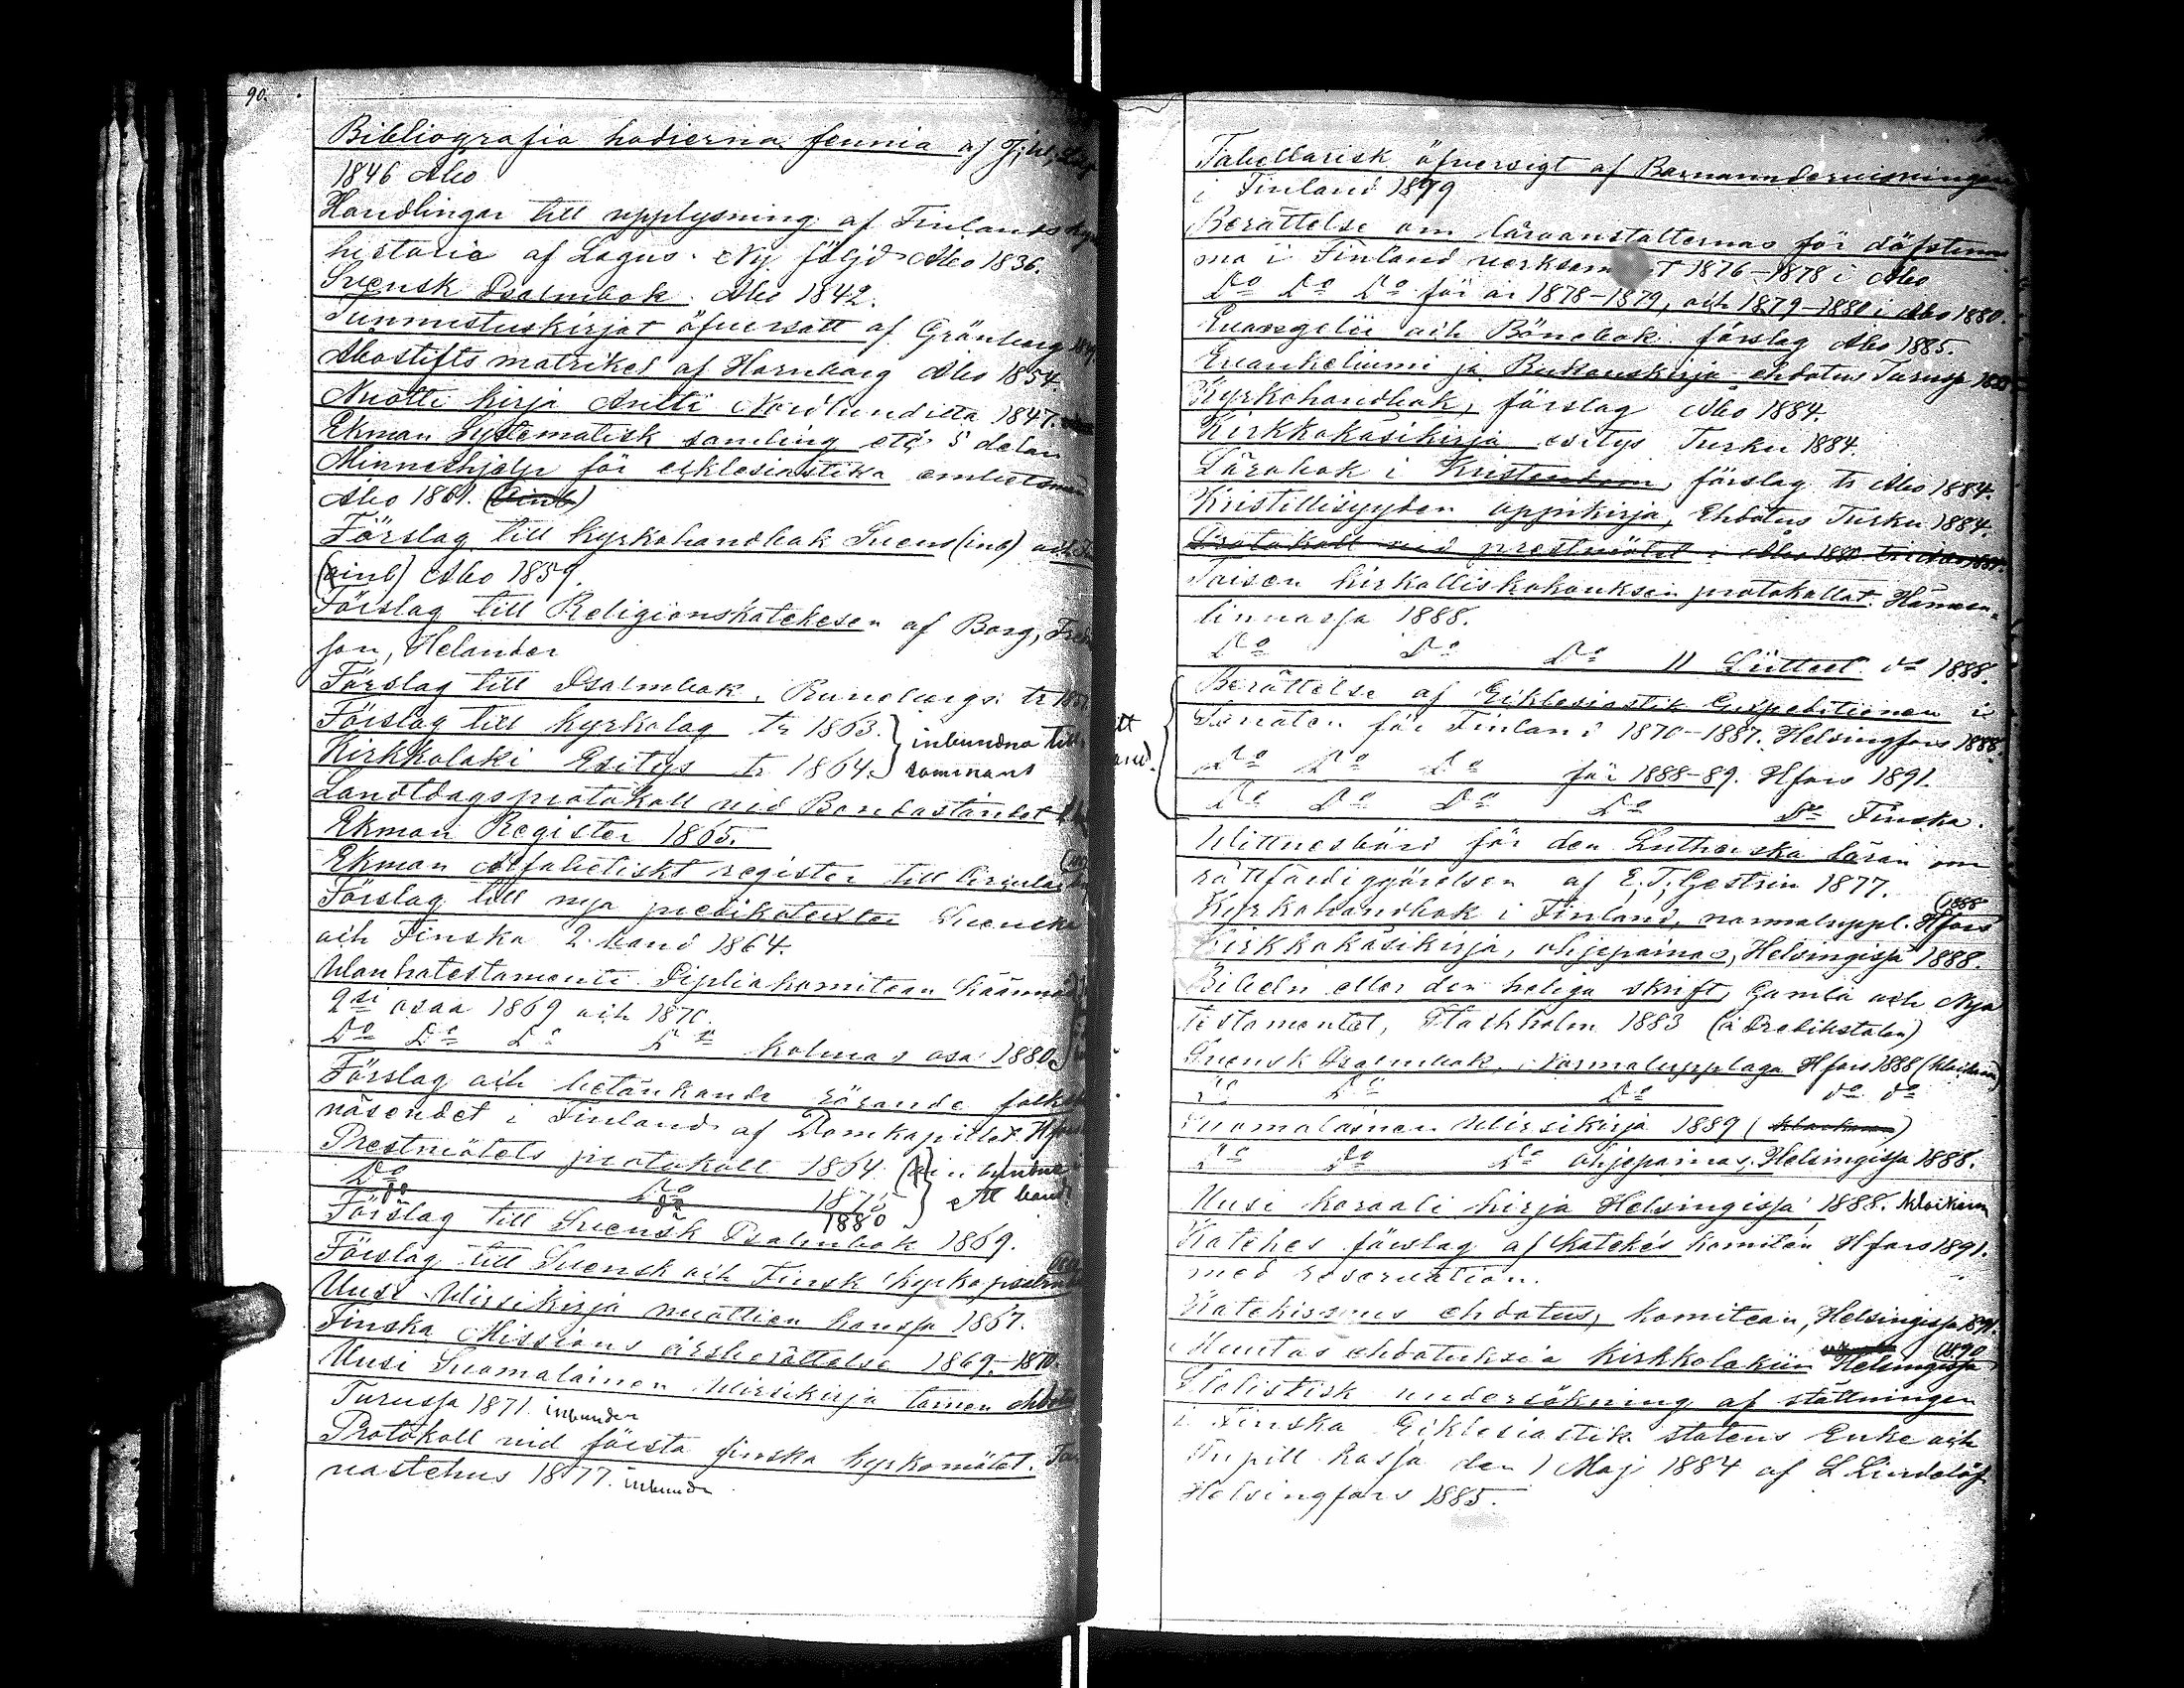 90.
Bibliografia hodierna fennia af
1846 Abo
Handlingar till upplysning af Finlands
historia af Lagus. Ny följd Abo 1836.
Svensk Psalmbok. Abo 1842.
Tunnustuskirjat öfversatt af Grönberg
Abostifts matrikel af Hornborg Abo 1854.
Nuotti kirja Antti Nordlundilta 1847.
Ekman Systematisk samling etc 5 delar
Minneshjelp för ecklesiastika embetsmän
Abo 1861. (oinb)
Förslag till Kyrkohandbok Svens (inb) och
(oinb) Abo 1859.
Förslag till Religionskatekesen af Borg,
son, Helander
Förslag till Psalmbok. Runebergs. tr
Förslag till Kyrkolag tr 1863. inbundna till
Kirkkolaki Esitys tr 1864. sammans
Landtdagsprotokoll vid Bondeståndet
Ekman Register 1865.
Ekman Alfabetiskt register till
Förslag till nya predikotexter Svenska
och Finska 2 band 1864.
Wanhatestamenti. Piplia komitean
2si osaa 1869 och 1870.
Do Do Do Do Kolmas osa 1880.
Förslag och betänkande rörande
väsendet i Finland af Domkapitlet.
Prestmötets protokoll 1864.
Do Do 1875 ett band
do do 1880
Förslag till Svensk Psalmbok 1869.
Förslag till Svensk och Finsk Kyrkopsalmbok
Uusi Wirsikirja nuottien kanssa 1867.
Finska Missions årsberättelse 1869.-1870.
Uusi Suomalainen Wirsikirja
Turussa 1871. inbunden
Protokoll vid första finska kyrkomötet.
vastehus 1877. inbunden
Tabellarisk öfversigt af Barnaundervisningen
i Finland 1879
Berättelse om läroanstalternas för döfstum
ma i Finland 1876-1878 i Abo
Do Do Do för år 1878-1879, och 1879-1880 i Abo 1880.
Evangelii och Bönebok förslag Abo 1885.
Evankeliumi ja Rukouskirja ehdotus
Kyrkohandbok, förslag Abo 1884.
Kirkkokäsikirja esitys Turku 1884.
Lärobok i Kristendom, förslag tr Abo 1884.
Kristillisyyden oppikirja, Ehdotus Turku 1884.
Protokoll vid prestmötet i Abo 1880
Toisen kirkolliskokouksen protokollat. Hämeen-
linnassa 1888.
Do Do Do 11 Liitteet do 1888.
Berättelse af Ecklesiastik Expeditionen i
Senaten för Finland 1870-1887. Helsingfors 1888.
Do Do Do för 1888-89. Hfors 1891.
Do Do Do Do Do Finska.
Wittnesbörd för den Lutherska läran om
rättfärdiggörelsen af E. T. Gestrin 1877.
(1888
Kyrkohandbok i Finland, normaluppl. Hfors
Kirkkokäsikirja, ohjepainos, Helsingissä 1888.
Bibeln eller den heliga skrift, Gamla och Nya
testamentet, Stockholm 1883 (å Predikstolen)
Svensk Psalmbok. Normalupplaga Hfors 1888
Do Do Do do do
Suomalainen Wirsikirja 1889
Do Do Do ohjepainos. Helsingissa 1888.
Uusi koraali kirja Helsingissä 1888.
Katekes förslag af Katekes komitén Hfors 1891.
med reservation.
Katekismus ehdotus, komitean, Helsingissa 1891.
(1890
Muutos ehdotuksia kirkkolakiin Helsingissa
Statistisk undersökning af ställningen
i Finska Ecklesiastik statens Enke och
Pupill kassa den 1 Maj 1884 af L. Lindelöf
Helsingfors 1885.